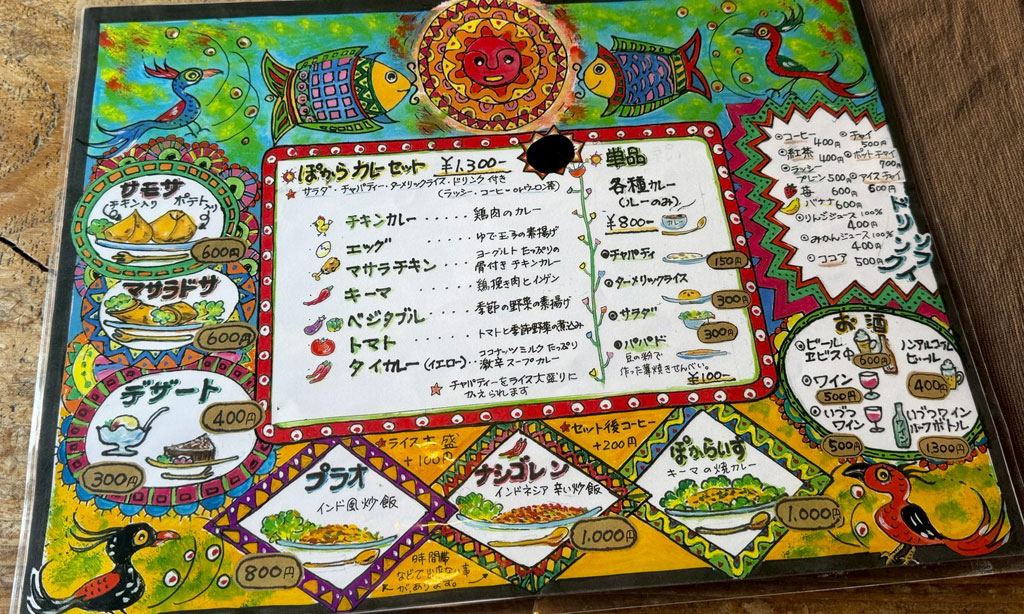 サモサ
チキン入り ポテト
600円
マサラドサ
600円
デザート
400円
300円
ぽからカレーセット ¥1.300-
★ サラダ・チャパティ・ターメリックライス・ドリンク付き
(ラッシー・コーヒー orウーロン茶)
チキンカレー ‥‥‥ 鶏肉のカレー
エッグ ‥‥‥ ゆで玉子の素揚げ
マサラチキン ‥‥ ヨーグルトたっぷりの
骨付きチキンカレー
キーマ ‥‥‥ 鶏挽き肉とインゲン
ベジタブル ‥‥‥ 季節の野菜の素揚げ
トマト ‥‥‥ トマトと季節野菜の煮込み
タイカレー (イエロー)‥ ココナッツミルクたっぷり
激辛スープカレー
★ チャパティーをライス大盛りに
かえられます
単品
各種カレー
(ルーのみ)
¥800-
カレー
チャパティ
150円
ターメリックライス
300円
サラダ
300円
パパド
豆の粉で
作った薄焼きせんべい。
¥100-
コーヒー 400円
紅茶 400円
ラッシー
プレーン 500円
苺 600円
バナナ 600円
りんごジュース 100%
400円
みかんジュース 100%
400円
ココア 500円
チャイ
500円
ポットチャイ
700円
アイスチャイ
600円
ドリンク
お酒
ビール
ヱビス中
600円
ノンアルコール
ビール
400円
ワイン
500円
いづつ
ワイン
500円
いづつワイン
ハーフボトル
1300円
★ライス大盛
+100円
★セット後コーヒー
+200円
プラオ
インド風炒飯
800円
ナシゴレン
インドネシア 辛い炒飯
1.000円
ぽからいす
キーマの焼カレー
1.000円
時間帯
などで出せない事
があります。